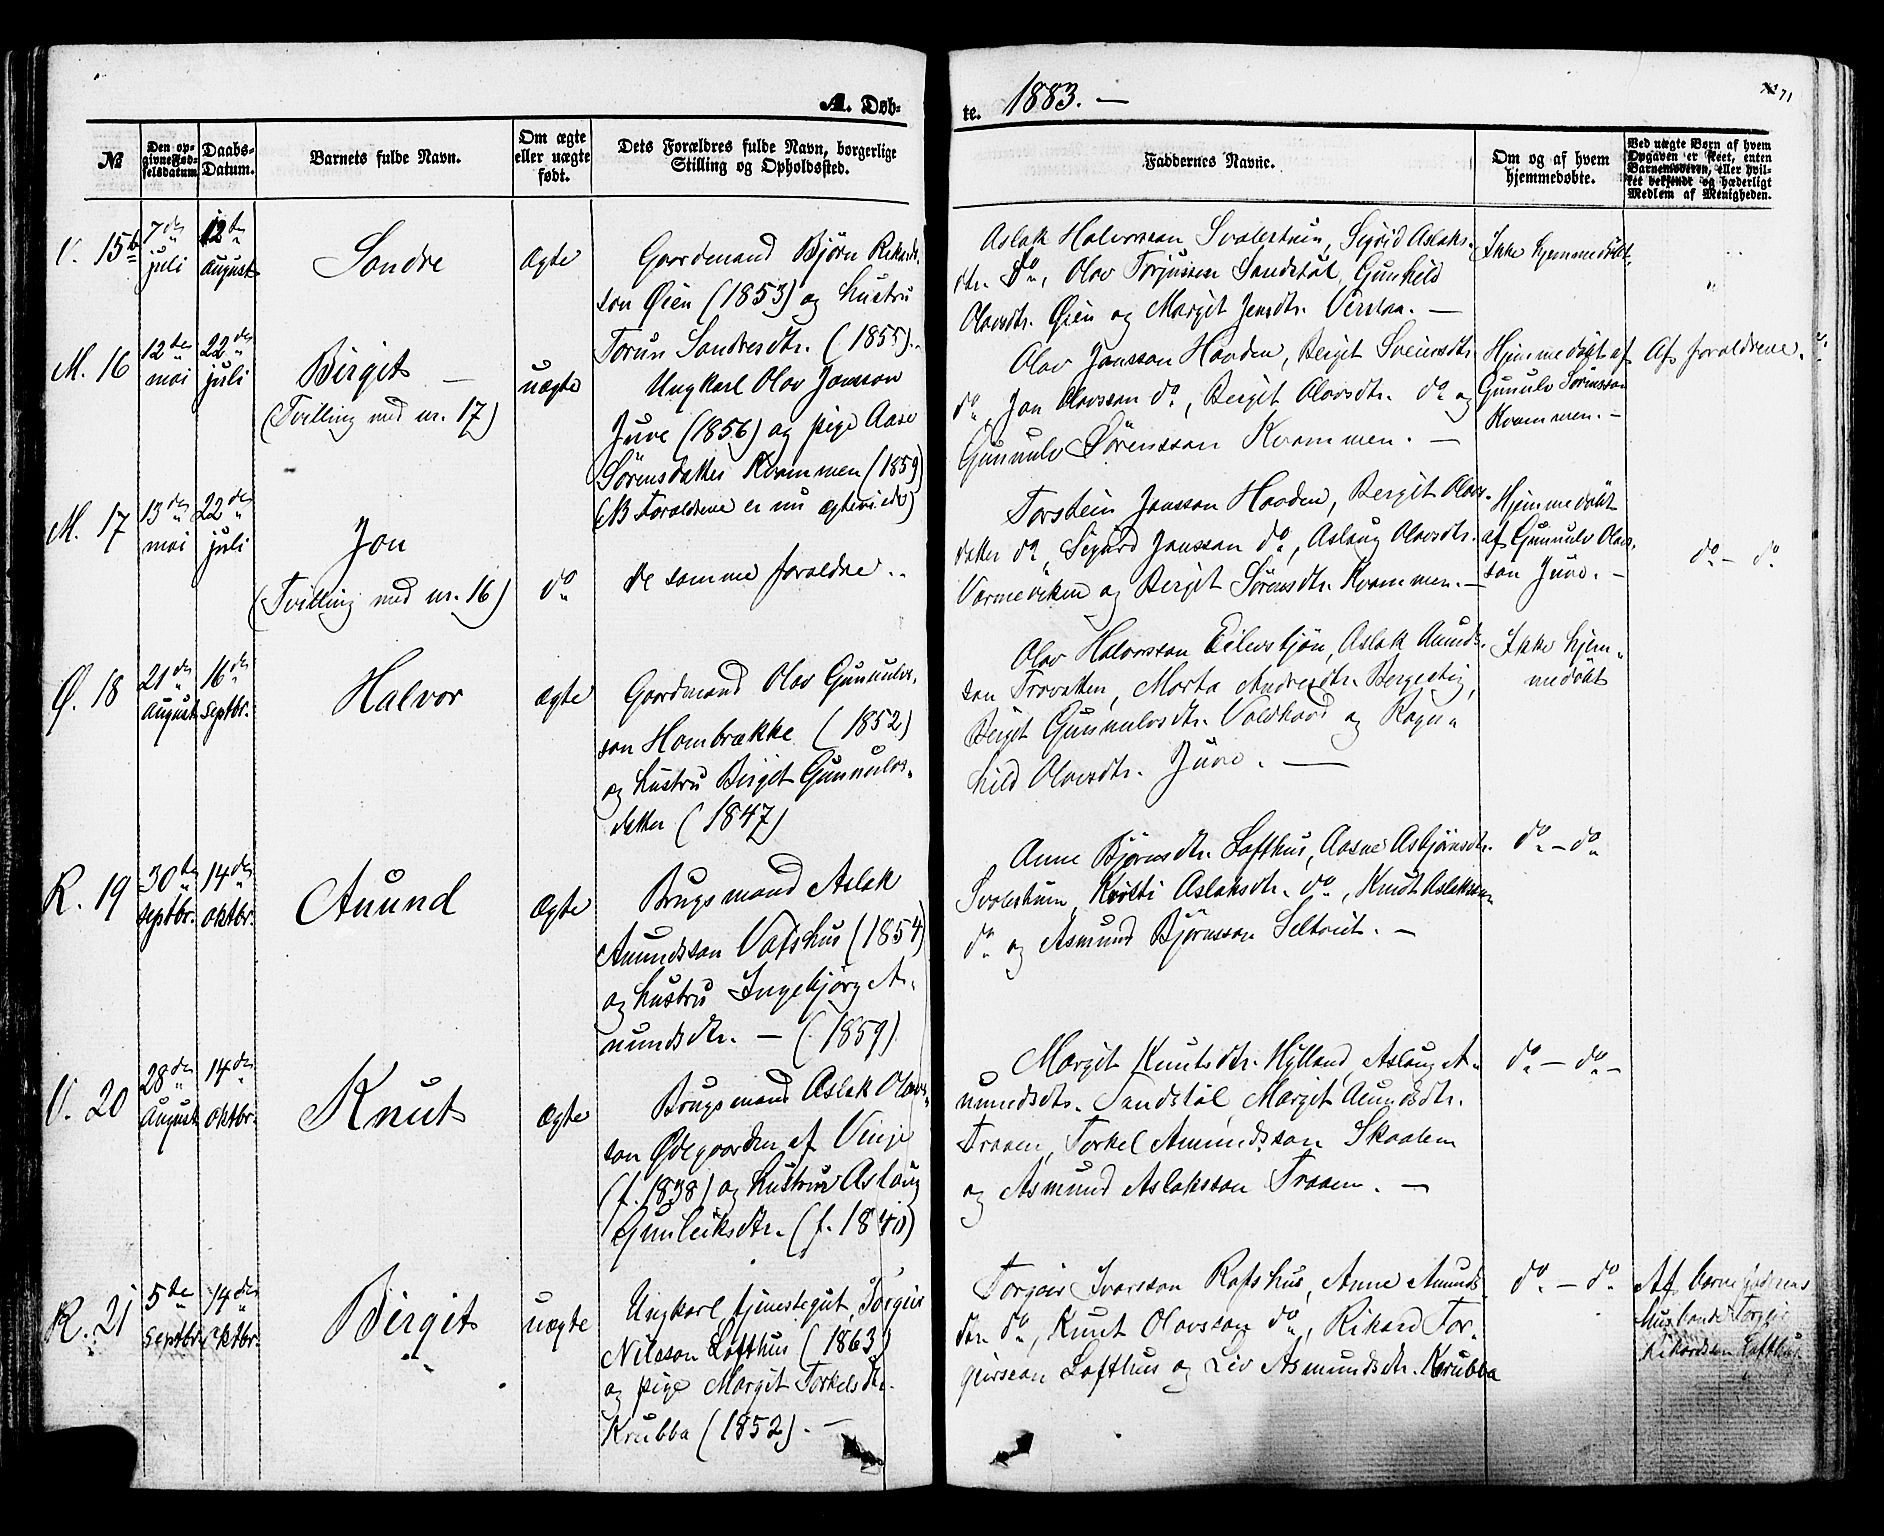 A. Døb-
te. 1883. —
71
№
Den op-
givne Fød-
selsdatum.
Daabs-
Datum.
Barnets fulde Navn.
Om ægte
eller uægte
født.
Dets Forældres fulde Navn, borgerlige
Stilling og Opholdssted.
Faddernes Navne.
Om og af hvem
hjemmedøbte.
Ved uægte Børn af hvem
Opgaven er skeet, enten
Barnemoderen, eller hvil-
ket bekjendt og hæderligt
Medlem af Menigheden.
V. 15b
7de
juli
12te
august
Sondre
ægte
Gaardmand Björn Rikards-
son Øien (1853) og hustru
Torun Sondresdtr. (1855).
Aslak Halvorsson Svalestuin, Sigrid Aslaks-
dtr. do, Olav Torjussen Sandstöl, Gunhild
Olavsdtr. Øien og Margit Jensdtr. Verslaa. —
Ikke hjemmedöbt.
"
M. 16
12te
mai
22de
juli
Birgit —
(Tvilling med nr. 17)
uægte
Ungkarl Olav Jonsson
Juve (1856) og pige Aase
Sörensdatter Kvammen (1859)
(NB Foraldrene er nu egteviede)
Olav Jonsson Haaden, Bergit Sveinsdtr.
do, Jon Olavsson do, Bergit Olavsdtr. do og
Gunnulv Sörensson Kvammen. —
Hjemmedöbt af
Gunulv Sörensson
Kvammen. —
Af foraldrene.
M. 17
13de
mai
22de
juli
Jon
(Tvilling med nr. 16)
do
de samme foraldre..
Torstein Jonsson Haaden, Bergit Olavs-
datter do, Sigurd Jonsson do, Aslaug Olavsdtr.
Varmeviken og Bergit Sörensdtr. Kvammen. —
Hjemmedöbt
af Gunnulv Olavs-
son Juve. —
do — do
Ø. 18
21de
August
16de
septbr.
Halvor
ægte
Gaardmand Olav Gunnulvs-
son Hombrække (1852)
og hustru Birgit Gunnulvs-
datter (1847)
Olav Halvorsson Eilevstjön, Aslak Aunds-
son Trovatten, Marta Andresdtr. Bergestig,
Birgit Gunnulvsdtr. Valdkaas og Ragn-
hild Olavsdtr. Juve. —
Ikke hjem-
medöbt
R. 19
30te
septbr.
14de
oktbr.
Anund
ægte
Brugsmand Aslak
Anundsson Vafshus (1854)
og hustru Ingebjörg A-
nundsdtr. — (1859)
Anne Björnsdtr. Lofthus, Aasne Asbjörnsdtr.
Svalestuin, Kristi Aslaksdtr. do, Knut Aslaksson
do og Asmund Björnsson Seltveit. —
do — do
V. 20
28de
August
14de
oktbr.
Knut
ægte
Brugsmand Aslak Olavs-
son Ødegaarden af Vinje
(f. 1838) og hustru Aslaug
Gunleiksdtr. (f. 1840)
Margit Knutsdtr. Hylland, Aslaug A-
nundsdtr. Sandstöl Margit Aanundsdtr.
Traaen, Torkel Amundsson Skaalen
og Asmund Aslaksson Traaen. —
do — do —
R. 21
5te
septbr.
14de
oktbr.
Birgit
uægte
Ungkarl, tjenestegut, Torgeir
Nilsson Lofthus (1863)
og pige Margit Torkelsdtr.
Krubba (1852). —
Torgeir Ivarsson Rafshus, Anne Aunds-
dtr. do, Knut Olavsson do, Rikard Tor-
geirsson Lofthus og Liv Asmundsdtr. Krubba
do — do
Af barnefaderens
husbonde Torgeir
Rikardsson Lofthus.